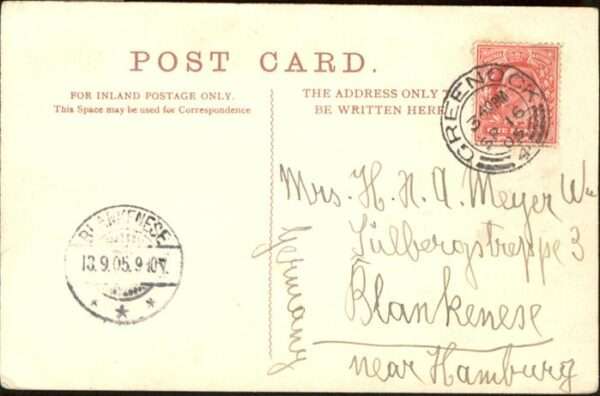 POST CARD.
FOR INLAND POSTAGE ONLY.
This Space may be used for Correspondence
THE ADDRESS ONLY TO
BE WRITTEN HERE
GREENOCK
BLANKENESE
13.9.05.9-10V.
Mrs. H. H. A. Meyer Ww
Sülbergstreppe 3
Blankenese
near Hamburg
Germany